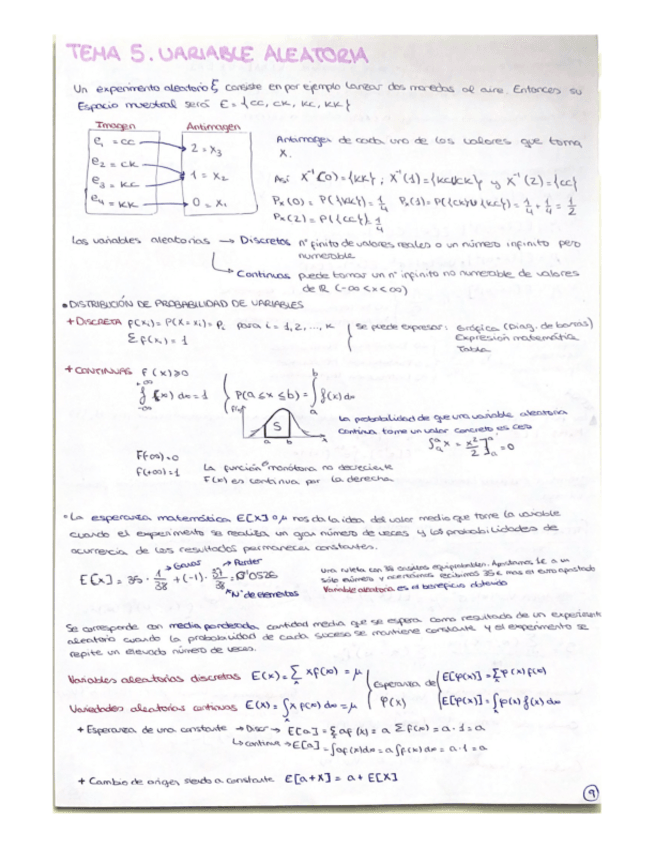 TEMA 5. VARIABLE ALEATORIA
Un experimento aleatorio ξ consiste en por ejemplo lanzar dos monedas al aire. Entonces su
Espacio muestral será E = {CC, CK, KC, KK}
Imagen Antimagen
e1 = CC
e2 = CK
e3 = KC
e4 = KK
2 = X3
1 = X2
0 = X1
Antimagen de cada uno de los valores que toma
X.
Así X⁻¹(0) = {KK} ; X⁻¹(1) = {KCUCK} y X⁻¹(2) = {CC}
Px(0) = P({KK}) = 1/4 Px(1) = P({CK}U{KC}) = 1/4 + 1/4 = 1/2
Px(2) = P({CC}) 1/4
Las variables aleatorias → Discretas nº finito de valores reales o un número infinito pero
numerable
→ Continuas puede tomar un nº infinito no numerable de valores
de ℝ (-∞<x<∞)
• DISTRIBUCIÓN DE PROBABILIDAD DE VARIABLES
+ DISCRETA f(xi) = P(X = xi) = Pi para i = 1, 2, ..., k
Σ f(xi) = 1
Se puede expresar: Gráfica (Diag. de barras)
Expresión matemática
Tabla
+ CONTINUAS f(x)≥0
∫ f(x) dx = 1
+∞
-∞
P(a ≤ x ≤ b) = ∫ f(x) dx
b
a
S
a b
La probabilidad de que una variable aleatoria
continua tome un valor concreto es cero
∫ x = x²/2 ] = 0
F(-∞) = 0
F(+∞) = 1
La función monótona no decreciente
F(x) es continua por la derecha
• La esperanza matemática E[X] o μ nos da la idea del valor medio que tome la variable
cuando el experimento se realiza un gran número de veces y las probabilidades de
ocurrencia de los resultados permanecen constantes.
→ Ganas → Perder
E[X] = 35 · 1/38 + (-1) · 37/38 = 0'0526
Nº de elementos
una ruleta con 38 casillas equiprobables. Apostamos 1€ a un
sólo número y acertamos recibimos 35€ más el euro apostado
Variable aleatoria es el beneficio obtenido
Se corresponde con media ponderada, cantidad media que se espera como resultado de un experimento
aleatorio cuando la probabilidad de cada suceso se mantiene constante y el experimento se
repite un elevado número de veces.
Variables aleatorias discretas E(X) = Σ x f(x) = μ
Variedades aleatorias continuas E(X) = ∫ x f(x) dx = μ
Esperanza de
φ(x)
E[φ(x)] = Σ φ(x) f(x)
E[φ(x)] = ∫ φ(x) f(x) dx
+ Esperanza de una constante → Discr → E[a] = Σ a f(x) = a Σ f(x) = a · 1 = a
→ continua → E[a] = ∫ a f(x) dx = a ∫ f(x) dx = a · 1 = a
+ Cambio de origen siendo a constante E[a+X] = a + E[X]
9